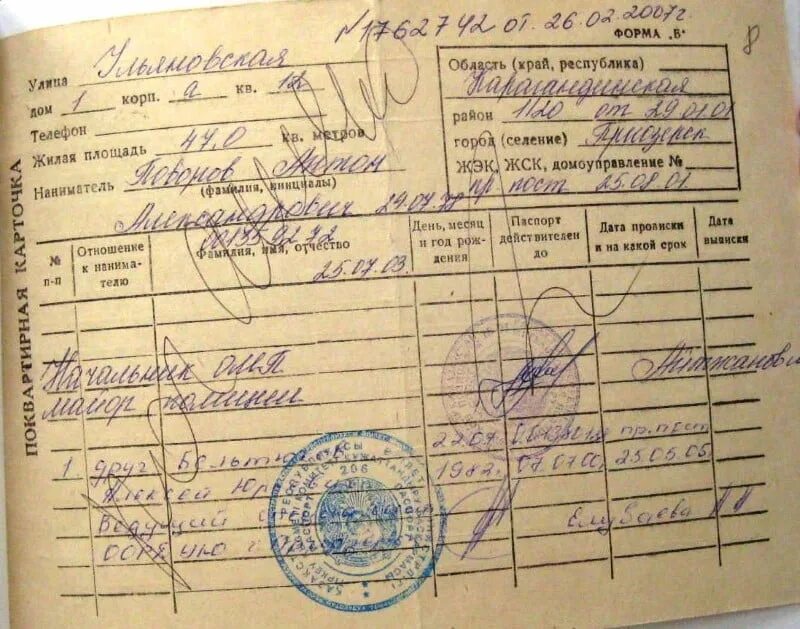 №1762742 от 26.02.2007г.
ФОРМА „Б"
8
ПОКВАРТИРНАЯ КАРТОЧКА
Улица Ульяновская
дом 1 корп. а кв. 12
Телефон
Жилая площадь 47,0 кв. метров
Наниматель Поворов Антон
(фамилия, инициалы)
Александрович 29.07.78
Область (край, республика)
Карагандинская
район 1120 от 29.01.01
город (селение) Приозерск
ЖЭК, ЖСК, домоуправление №
пр пост 25.08.01.
№ п-п
Отношение к нанимателю
001359272
Фамилия, имя, отчество
25.07.03.
День, месяц и год рождения
Паспорт действителен до
Дата прописки и на какой срок
Дата выписки
Начальник ОМП
майор полиции
1 друг
22.07. пр. пост
Алексей 1982. 07.07.00 25.05.05
Ведущий
206